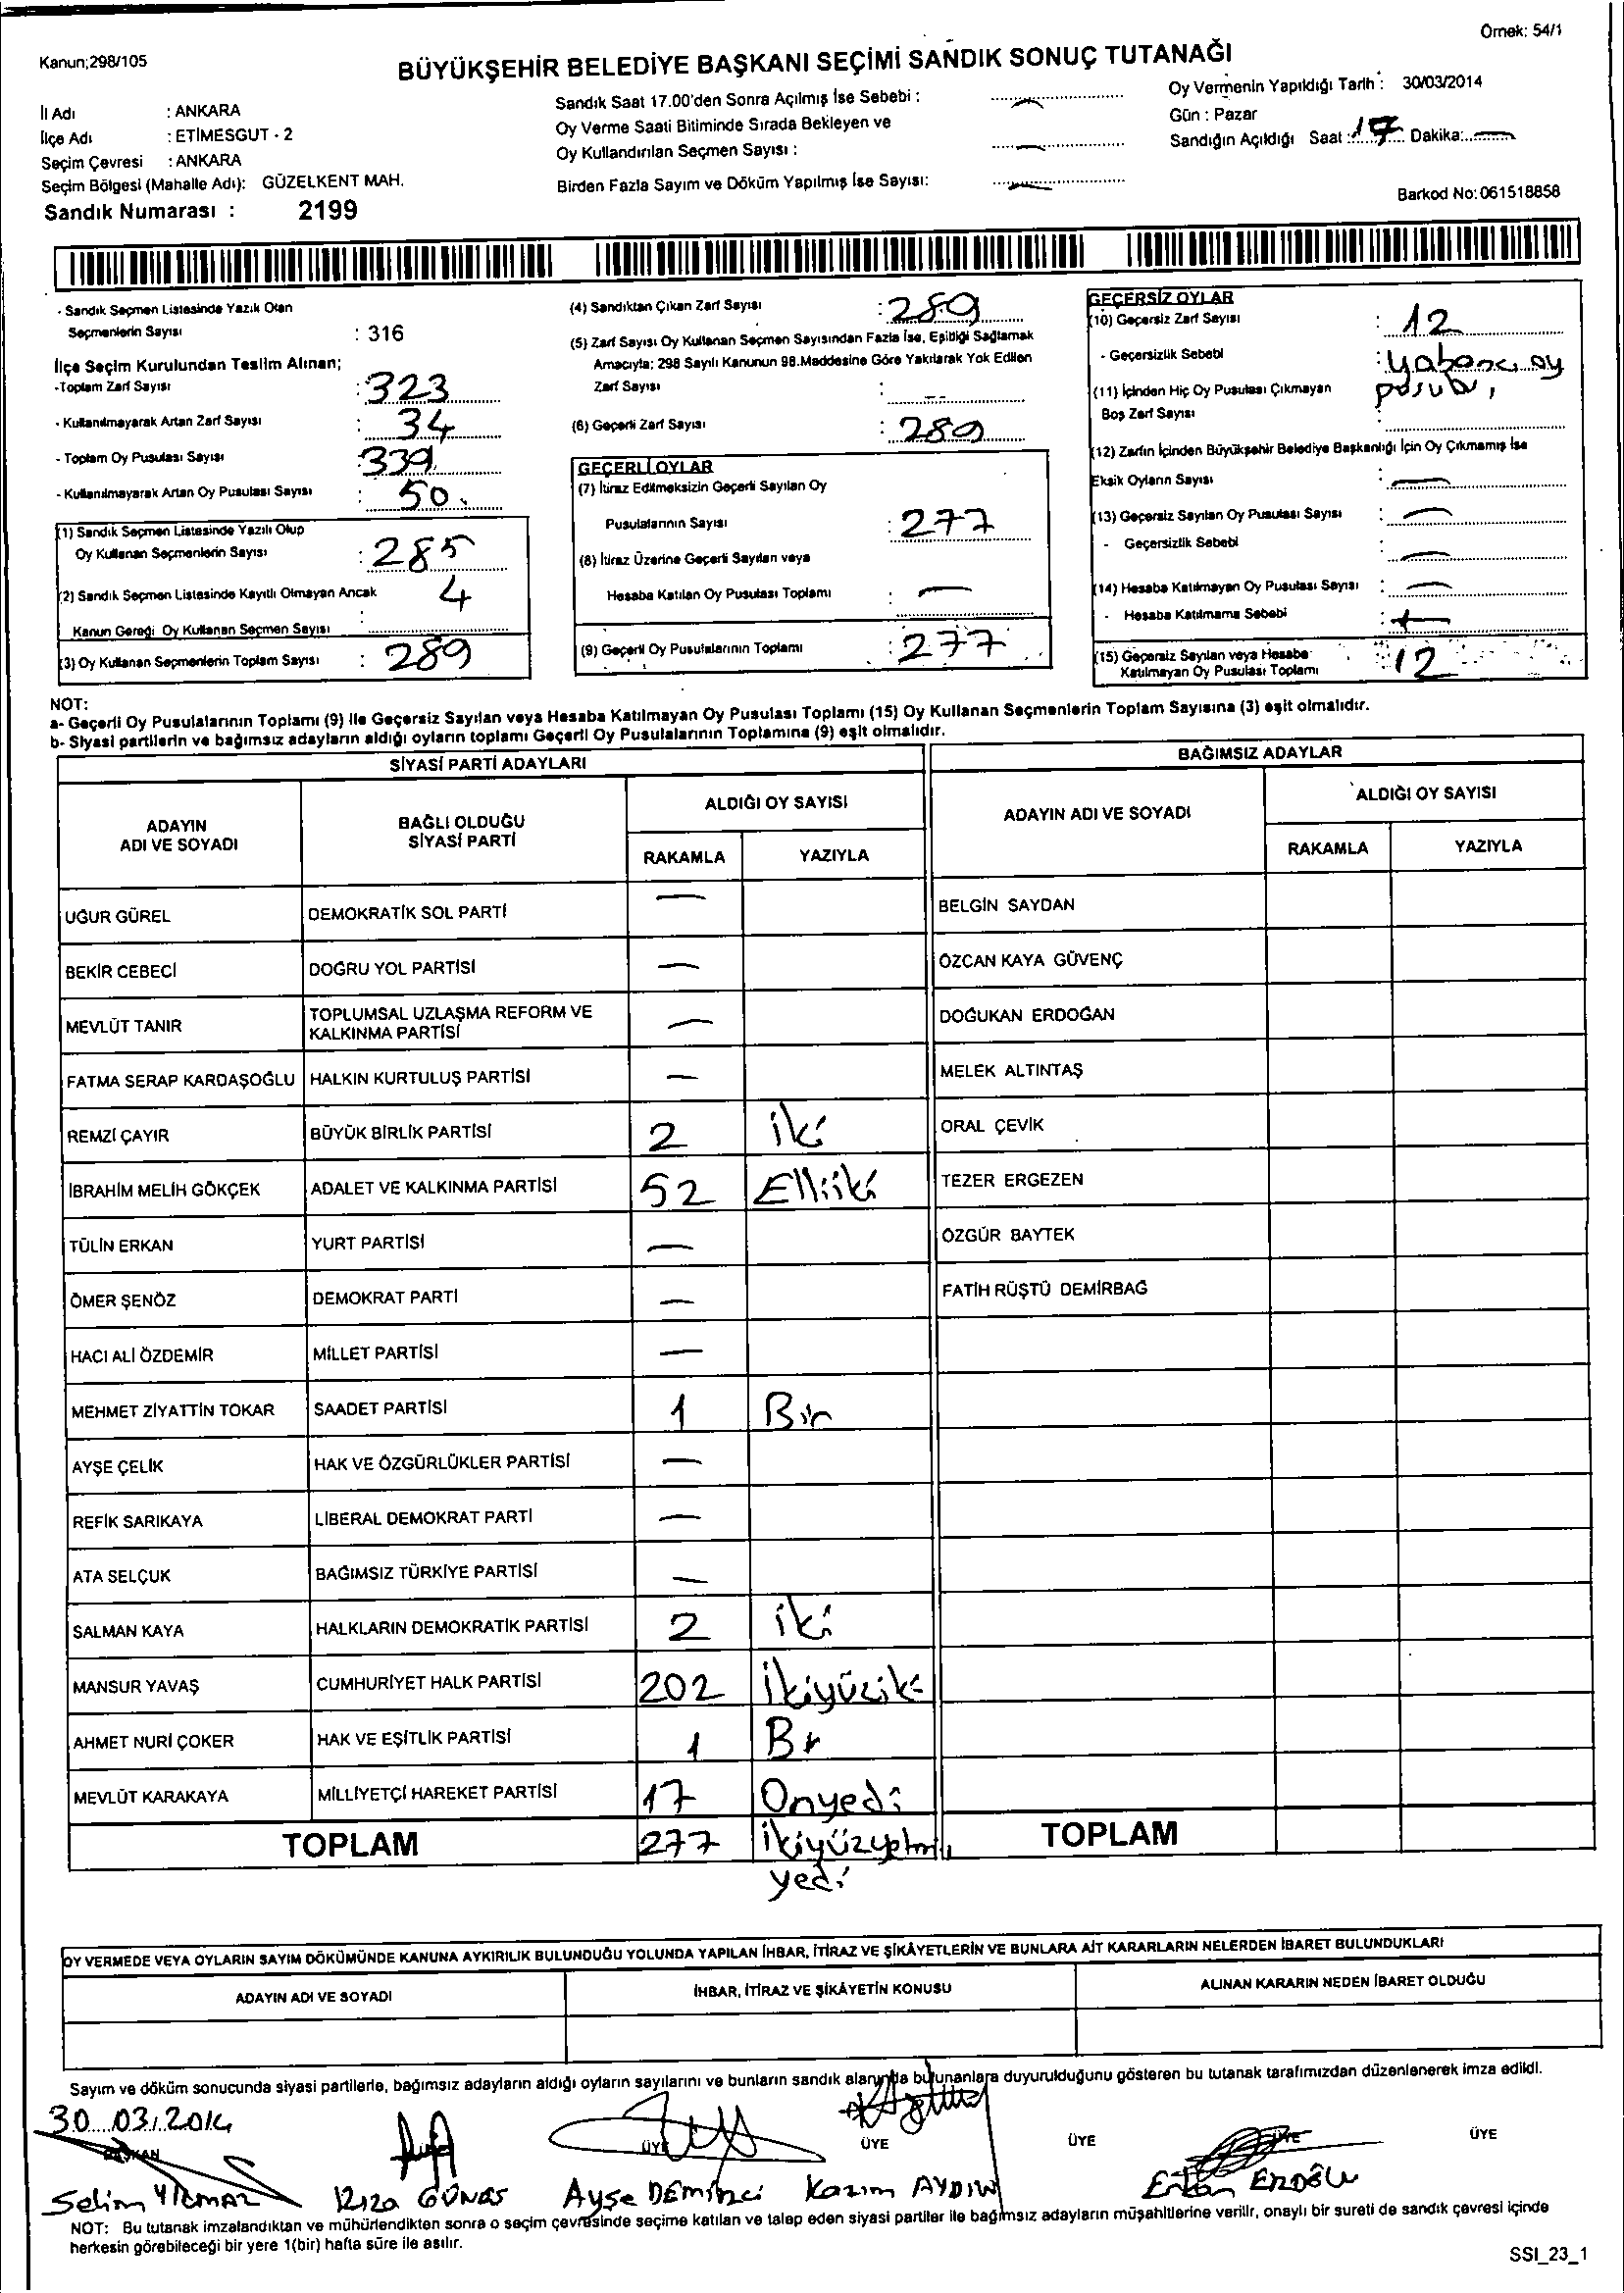 Örnek: 54/1
Kanun;298/105
BÜYÜKŞEHİR BELEDİYE BAŞKANI SEÇİMİ SANDIK SONUÇ TUTANAĞI
İl Adı : ANKARA
İlçe Adı : ETİMESGUT - 2
Seçim Çevresi : ANKARA
Seçim Bölgesi (Mahalle Adı): GÜZELKENT MAH.
Sandık Numarası : 2199
Sandık Saat 17.00'den Sonra Açılmış İse Sebebi : —
Oy Verme Saati Bitiminde Sırada Bekleyen ve
Oy Kullandırılan Seçmen Sayısı : —
Birden Fazla Sayım ve Döküm Yapılmış İse Sayısı: —
Oy Vermenin Yapıldığı Tarih : 30/03/2014
Gün : Pazar
Sandığın Açıldığı Saat : 17 Dakika: —
Barkod No:061518858
- Sandık Seçmen Listesinde Yazılı Olan
Seçmenlerin Sayısı : 316
İlçe Seçim Kurulundan Teslim Alınan;
-Toplam Zarf Sayısı : 323
- Kullanılmayarak Artan Zarf Sayısı : 34
- Toplam Oy Pusulası Sayısı : 339
- Kullanılmayarak Artan Oy Pusulası Sayısı : 50
(1) Sandık Seçmen Listesinde Yazılı Olup
Oy Kullanan Seçmenlerin Sayısı : 285
(2) Sandık Seçmen Listesinde Kayıtlı Olmayan Ancak
Kanun Gereği Oy Kullanan Seçmen Sayısı : 4
(3) Oy Kullanan Seçmenlerin Toplam Sayısı : 289
(4) Sandıktan Çıkan Zarf Sayısı : 289
(5) Zarf Sayısı Oy Kullanan Seçmen Sayısından Fazla İse, Eşitliği Sağlamak
Amacıyla; 298 Sayılı Kanunun 98.Maddesine Göre Yakılarak Yok Edilen
Zarf Sayısı : --
(6) Geçerli Zarf Sayısı : 289
GEÇERLİ OYLAR
(7) İtiraz Edilmeksizin Geçerli Sayılan Oy
Pusulalarının Sayısı : 277
(8) İtiraz Üzerine Geçerli Sayılan veya
Hesaba Katılan Oy Pusulası Toplamı : —
(9) Geçerli Oy Pusulalarının Toplamı : 277
GEÇERSİZ OYLAR
(10) Geçersiz Zarf Sayısı : 12
- Geçersizlik Sebebi : yabancı oy
pusula,
(11) İçinden Hiç Oy Pusulası Çıkmayan
Boş Zarf Sayısı :
(12) Zarfın İçinden Büyükşehir Belediye Başkanlığı İçin Oy Çıkmamış İse
Eksik Oyların Sayısı : —
(13) Geçersiz Sayılan Oy Pusulası Sayısı : —
- Geçersizlik Sebebi : —
(14) Hesaba Katılmayan Oy Pusulası Sayısı : —
- Hesaba Katılmama Sebebi : —
(15) Geçersiz Sayılan veya Hesaba
Katılmayan Oy Pusulası Toplamı : 12
NOT:
a- Geçerli Oy Pusulalarının Toplamı (9) ile Geçersiz Sayılan veya Hesaba Katılmayan Oy Pusulası Toplamı (15) Oy Kullanan Seçmenlerin Toplam Sayısına (3) eşit olmalıdır.
b- Siyasi partilerin ve bağımsız adayların aldığı oyların toplamı Geçerli Oy Pusulalarının Toplamına (9) eşit olmalıdır.
SİYASİ PARTİ ADAYLARI
ADAYIN
ADI VE SOYADI
BAĞLI OLDUĞU
SİYASİ PARTİ
ALDIĞI OY SAYISI
RAKAMLA YAZIYLA
UĞUR GÜREL DEMOKRATİK SOL PARTİ —
BEKİR CEBECİ DOĞRU YOL PARTİSİ —
MEVLÜT TANIR TOPLUMSAL UZLAŞMA REFORM VE
KALKINMA PARTİSİ —
FATMA SERAP KARDAŞOĞLU HALKIN KURTULUŞ PARTİSİ —
REMZİ ÇAYIR BÜYÜK BİRLİK PARTİSİ 2 iki
İBRAHİM MELİH GÖKÇEK ADALET VE KALKINMA PARTİSİ 52 Elliiki
TÜLİN ERKAN YURT PARTİSİ —
ÖMER ŞENÖZ DEMOKRAT PARTİ —
HACI ALİ ÖZDEMİR MİLLET PARTİSİ —
MEHMET ZİYATTİN TOKAR SAADET PARTİSİ 1 Bir
AYŞE ÇELİK HAK VE ÖZGÜRLÜKLER PARTİSİ —
REFİK SARIKAYA LİBERAL DEMOKRAT PARTİ —
ATA SELÇUK BAĞIMSIZ TÜRKİYE PARTİSİ —
SALMAN KAYA HALKLARIN DEMOKRATİK PARTİSİ 2 iki
MANSUR YAVAŞ CUMHURİYET HALK PARTİSİ 202 İkiyüziki
AHMET NURİ ÇOKER HAK VE EŞİTLİK PARTİSİ 1 Bir
MEVLÜT KARAKAYA MİLLİYETÇİ HAREKET PARTİSİ 17 Onyedi
TOPLAM 277 ikiyüzyetmiş
yedi
BAĞIMSIZ ADAYLAR
ADAYIN ADI VE SOYADI
ALDIĞI OY SAYISI
RAKAMLA YAZIYLA
BELGİN SAYDAN
ÖZCAN KAYA GÜVENÇ
DOĞUKAN ERDOĞAN
MELEK ALTINTAŞ
ORAL ÇEVİK
TEZER ERGEZEN
ÖZGÜR BAYTEK
FATİH RÜŞTÜ DEMİRBAĞ
TOPLAM
OY VERMEDE VEYA OYLARIN SAYIM DÖKÜMÜNDE KANUNA AYKIRILIK BULUNDUĞU YOLUNDA YAPILAN İHBAR, İTİRAZ VE ŞİKÂYETLERİN VE BUNLARA AİT KARARLARIN NELERDEN İBARET BULUNDUKLARI
ADAYIN ADI VE SOYADI İHBAR, İTİRAZ VE ŞİKÂYETİN KONUSU ALINAN KARARIN NEDEN İBARET OLDUĞU
Sayım ve döküm sonucunda siyasi partilerle, bağımsız adayların aldığı oyların sayılarını ve bunların sandık alanında bulunanlara duyurulduğunu gösteren bu tutanak tarafımızdan düzenlenerek imza edildi.
30.03.2014
BAŞKAN ÜYE ÜYE ÜYE ÜYE ÜYE
Selim YILMAZ Rıza GÜNEŞ Ayşe DEMİRCİ Kazım AYDIN Erkan ERDOĞLU
NOT: Bu tutanak imzalandıktan ve mühürlendikten sonra o seçim çevresinde seçime katılan ve talep eden siyasi partiler ile bağımsız adayların müşahitlerine verilir, onaylı bir sureti de sandık çevresi içinde
herkesin görebileceği bir yere 1(bir) hafta süre ile asılır.
SSI_23_1